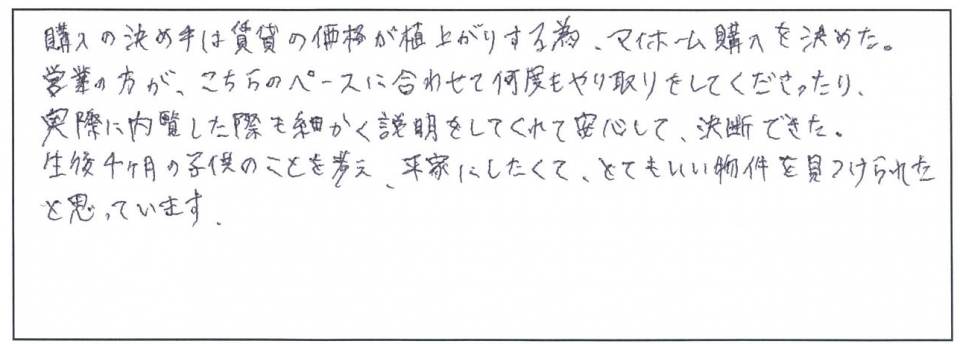 購入の決め手は賃貸の価格が値上がりする為、マイホーム購入を決めた。
営業の方が、こちらのペースに合わせて何度もやり取りをしてくださったり、
実際に内覧した際も細かく説明をしてくれて安心して、決断できた。
生後4ヶ月の子供のことを考え、平家にしたくて、とてもいい物件を見つけられた
と思っています.